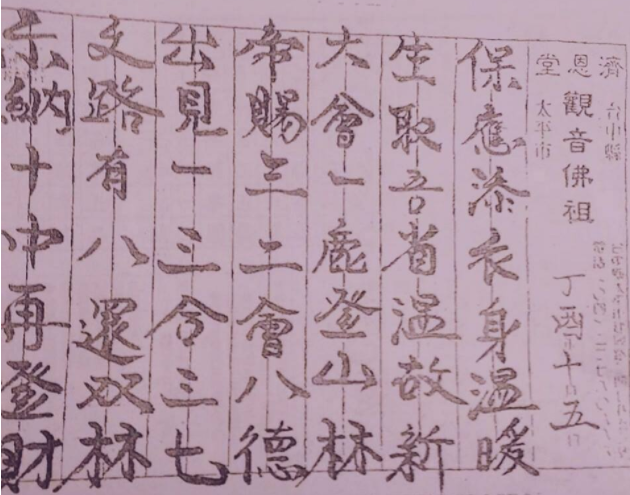 濟 台中縣
恩 觀音佛祖 丁酉十五
堂 太平市
保應添衣身溫暖
生取吾省溫故新
大會一鹿登山林
帝賜三二會八德
出見一三合三七
文路有八還双林
示納十中再登財